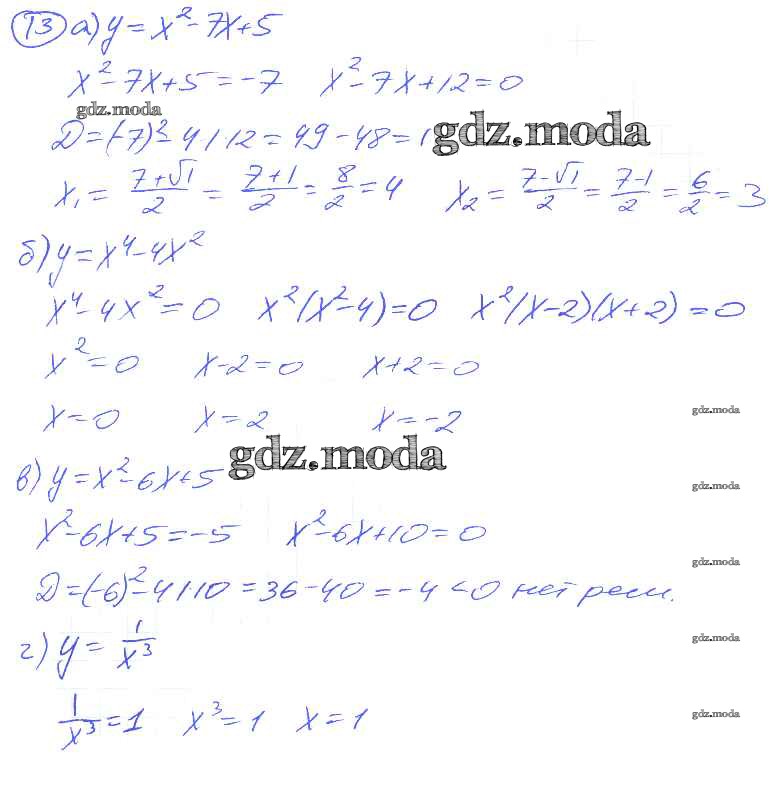 13 а) y = x² - 7x + 5
x² - 7x + 5 = -7 x² - 7x + 12 = 0
gdz.moda
D = (-7)² - 4·1·12 = 49 - 48 = 1
gdz.moda
x₁ = (7+√1)/2 = (7+1)/2 = 8/2 = 4 x₂ = (7-√1)/2 = (7-1)/2 = 6/2 = 3
б) y = x⁴ - 4x²
x⁴ - 4x² = 0 x²(x² - 4) = 0 x²(x - 2)(x + 2) = 0
x² = 0 x - 2 = 0 x + 2 = 0
x = 0 x = 2 x = -2
gdz.moda
gdz.moda
в) y = x² - 6x + 5
gdz.moda
x² - 6x + 5 = -5 x² - 6x + 10 = 0
gdz.moda
D = (-6)² - 4·1·10 = 36 - 40 = -4 < 0 нет реш.
г) y = 1/x³
gdz.moda
1/x³ = 1 x³ = 1 x = 1
gdz.moda